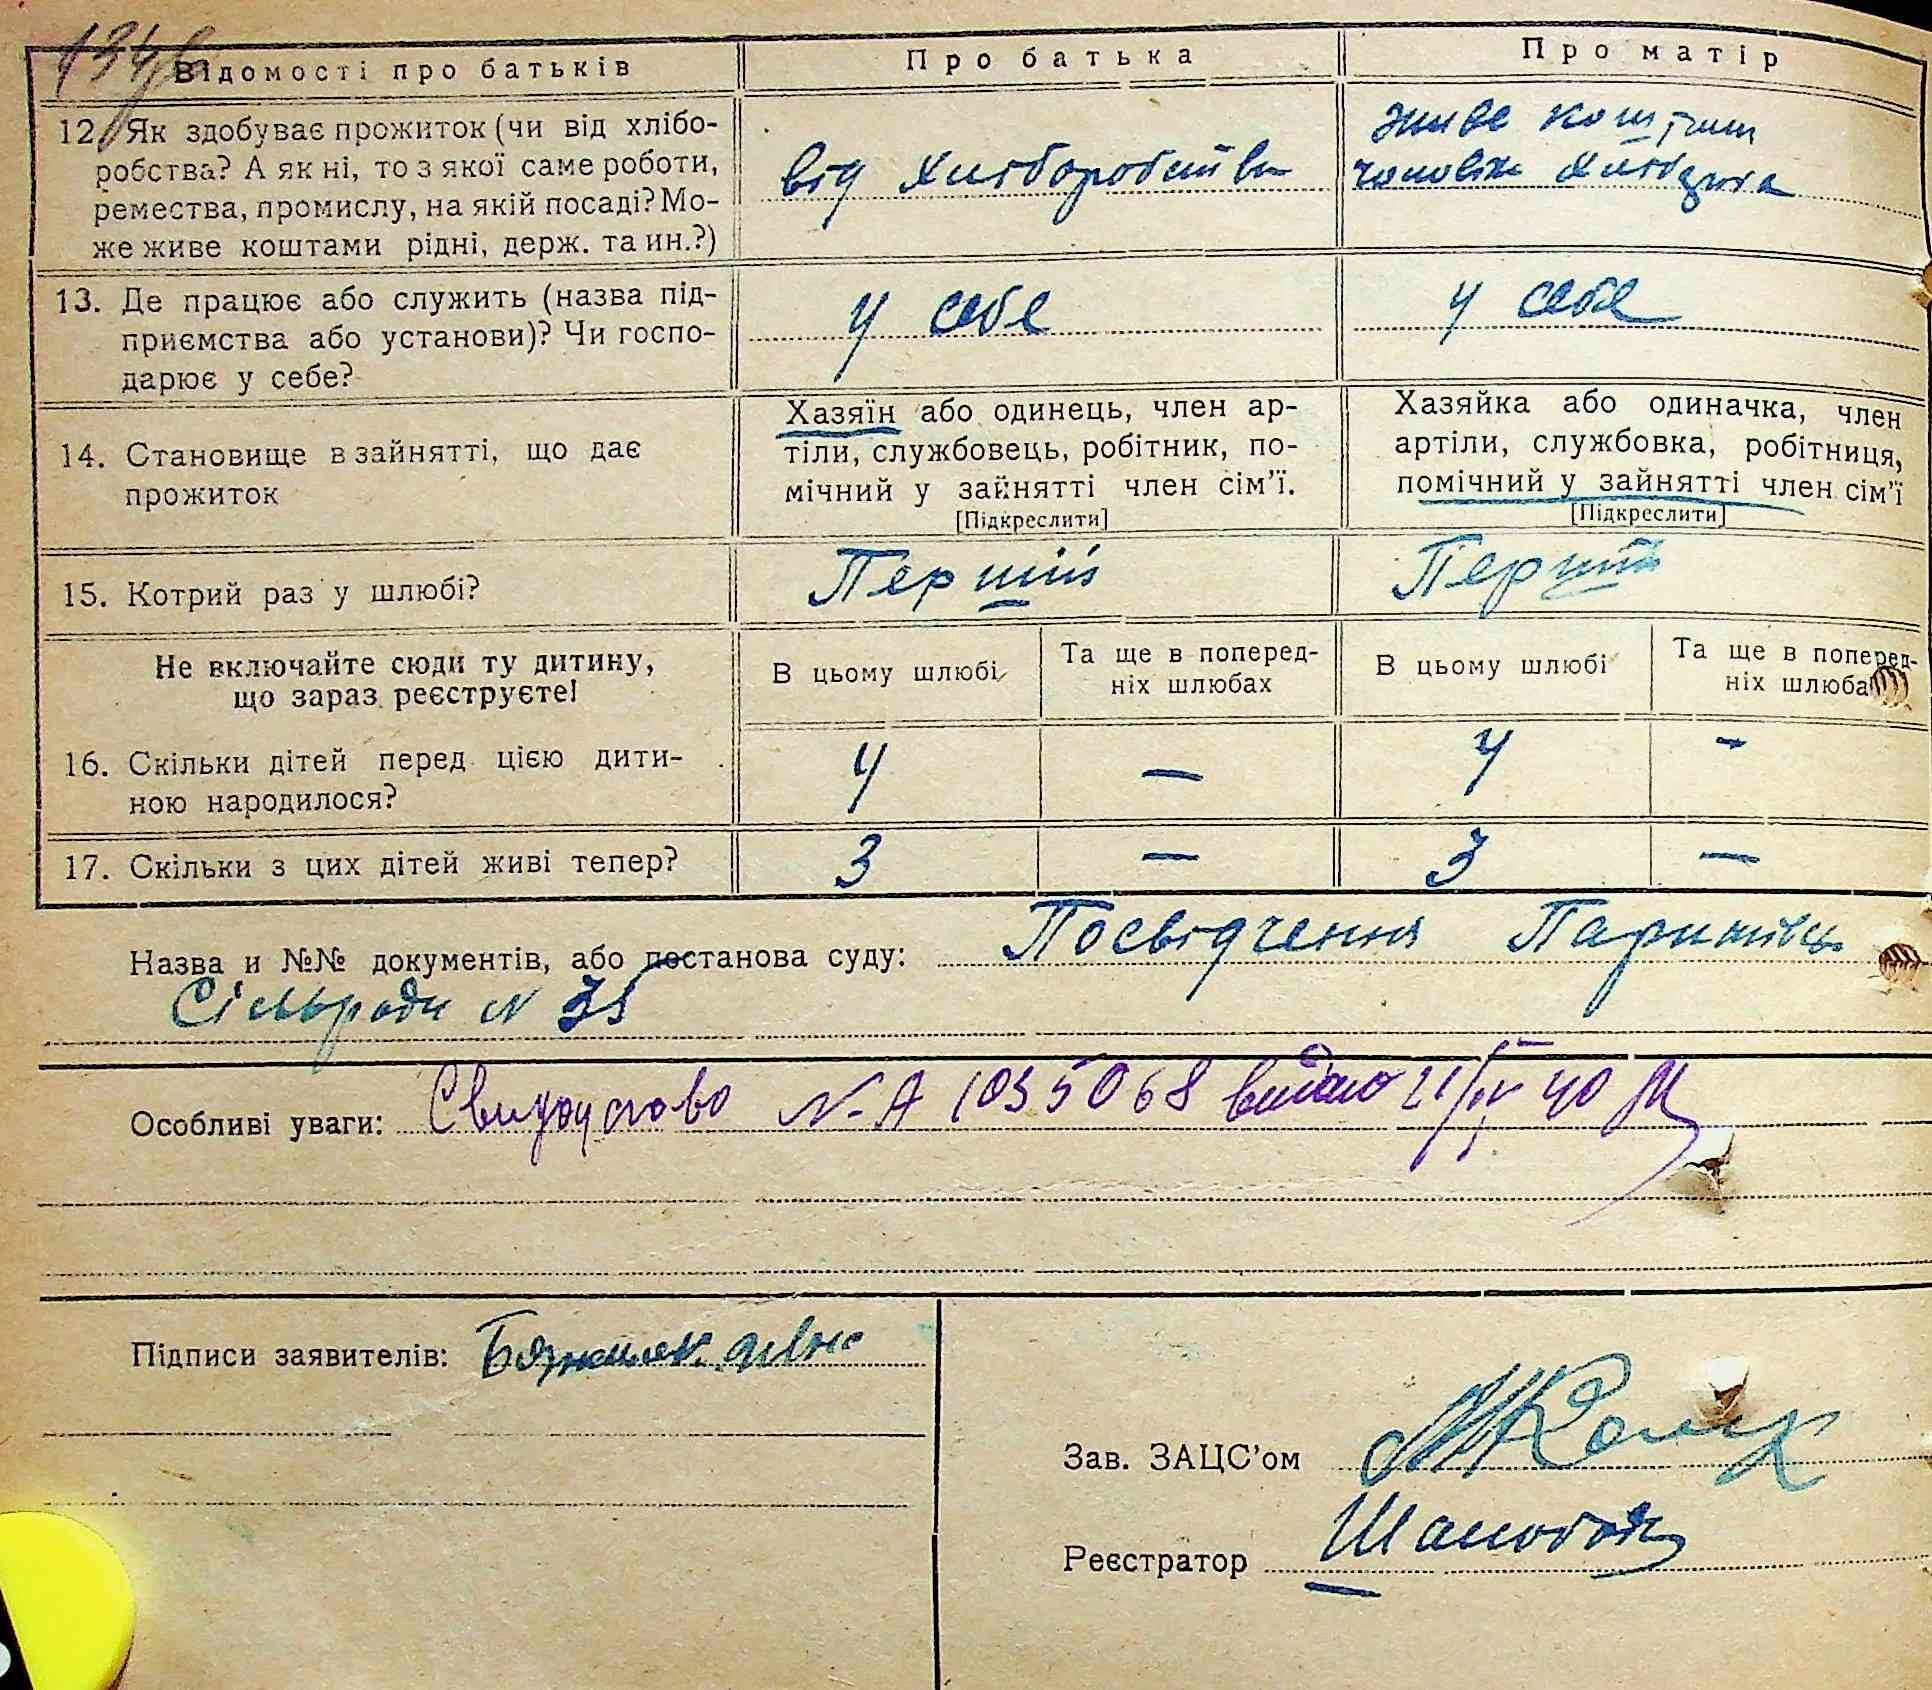 Відомості про батьків
Про батька
Про матір
12. Як здобуває прожиток (чи від хлібо-
робства? А як ні, то з якої саме роботи,
ремества, промислу, на якій посаді? Мо-
же живе коштами рідні, держ. та ин.?)
від хліборобства
живе коштами
чоловіка
13. Де працює або служить (назва під-
приємства або установи)? Чи госпо-
дарює у себе?
у себе
у себе
14. Становище в зайнятті, що дає
прожиток
Хазяїн або одинець, член ар-
тіли, службовець, робітник, по-
мічний у зайнятті член сім'ї.
[Підкреслити]
Хазяйка або одиначка, член
артіли, службовка, робітниця,
помічний у зайнятті член сім'ї
[Підкреслити]
15. Котрий раз у шлюбі?
Перший
Перший
Не включайте сюди ту дитину,
що зараз реєструєте!
В цьому шлюбі
Та ще в поперед-
ніх шлюбах
В цьому шлюбі
Та ще в поперед-
ніх шлюба
16. Скільки дітей перед цією дити-
ною народилося?
4
—
4
-
17. Скільки з цих дітей живі тепер?
3
—
3
—
Назва и №№ документів, або постанова суду: Посвідчення
Сільради N 35
Особливі уваги: N-А 1035068 видано 21/IV 40
Підписи заявителів:
Зав. ЗАЦС'ом
Реєстратор